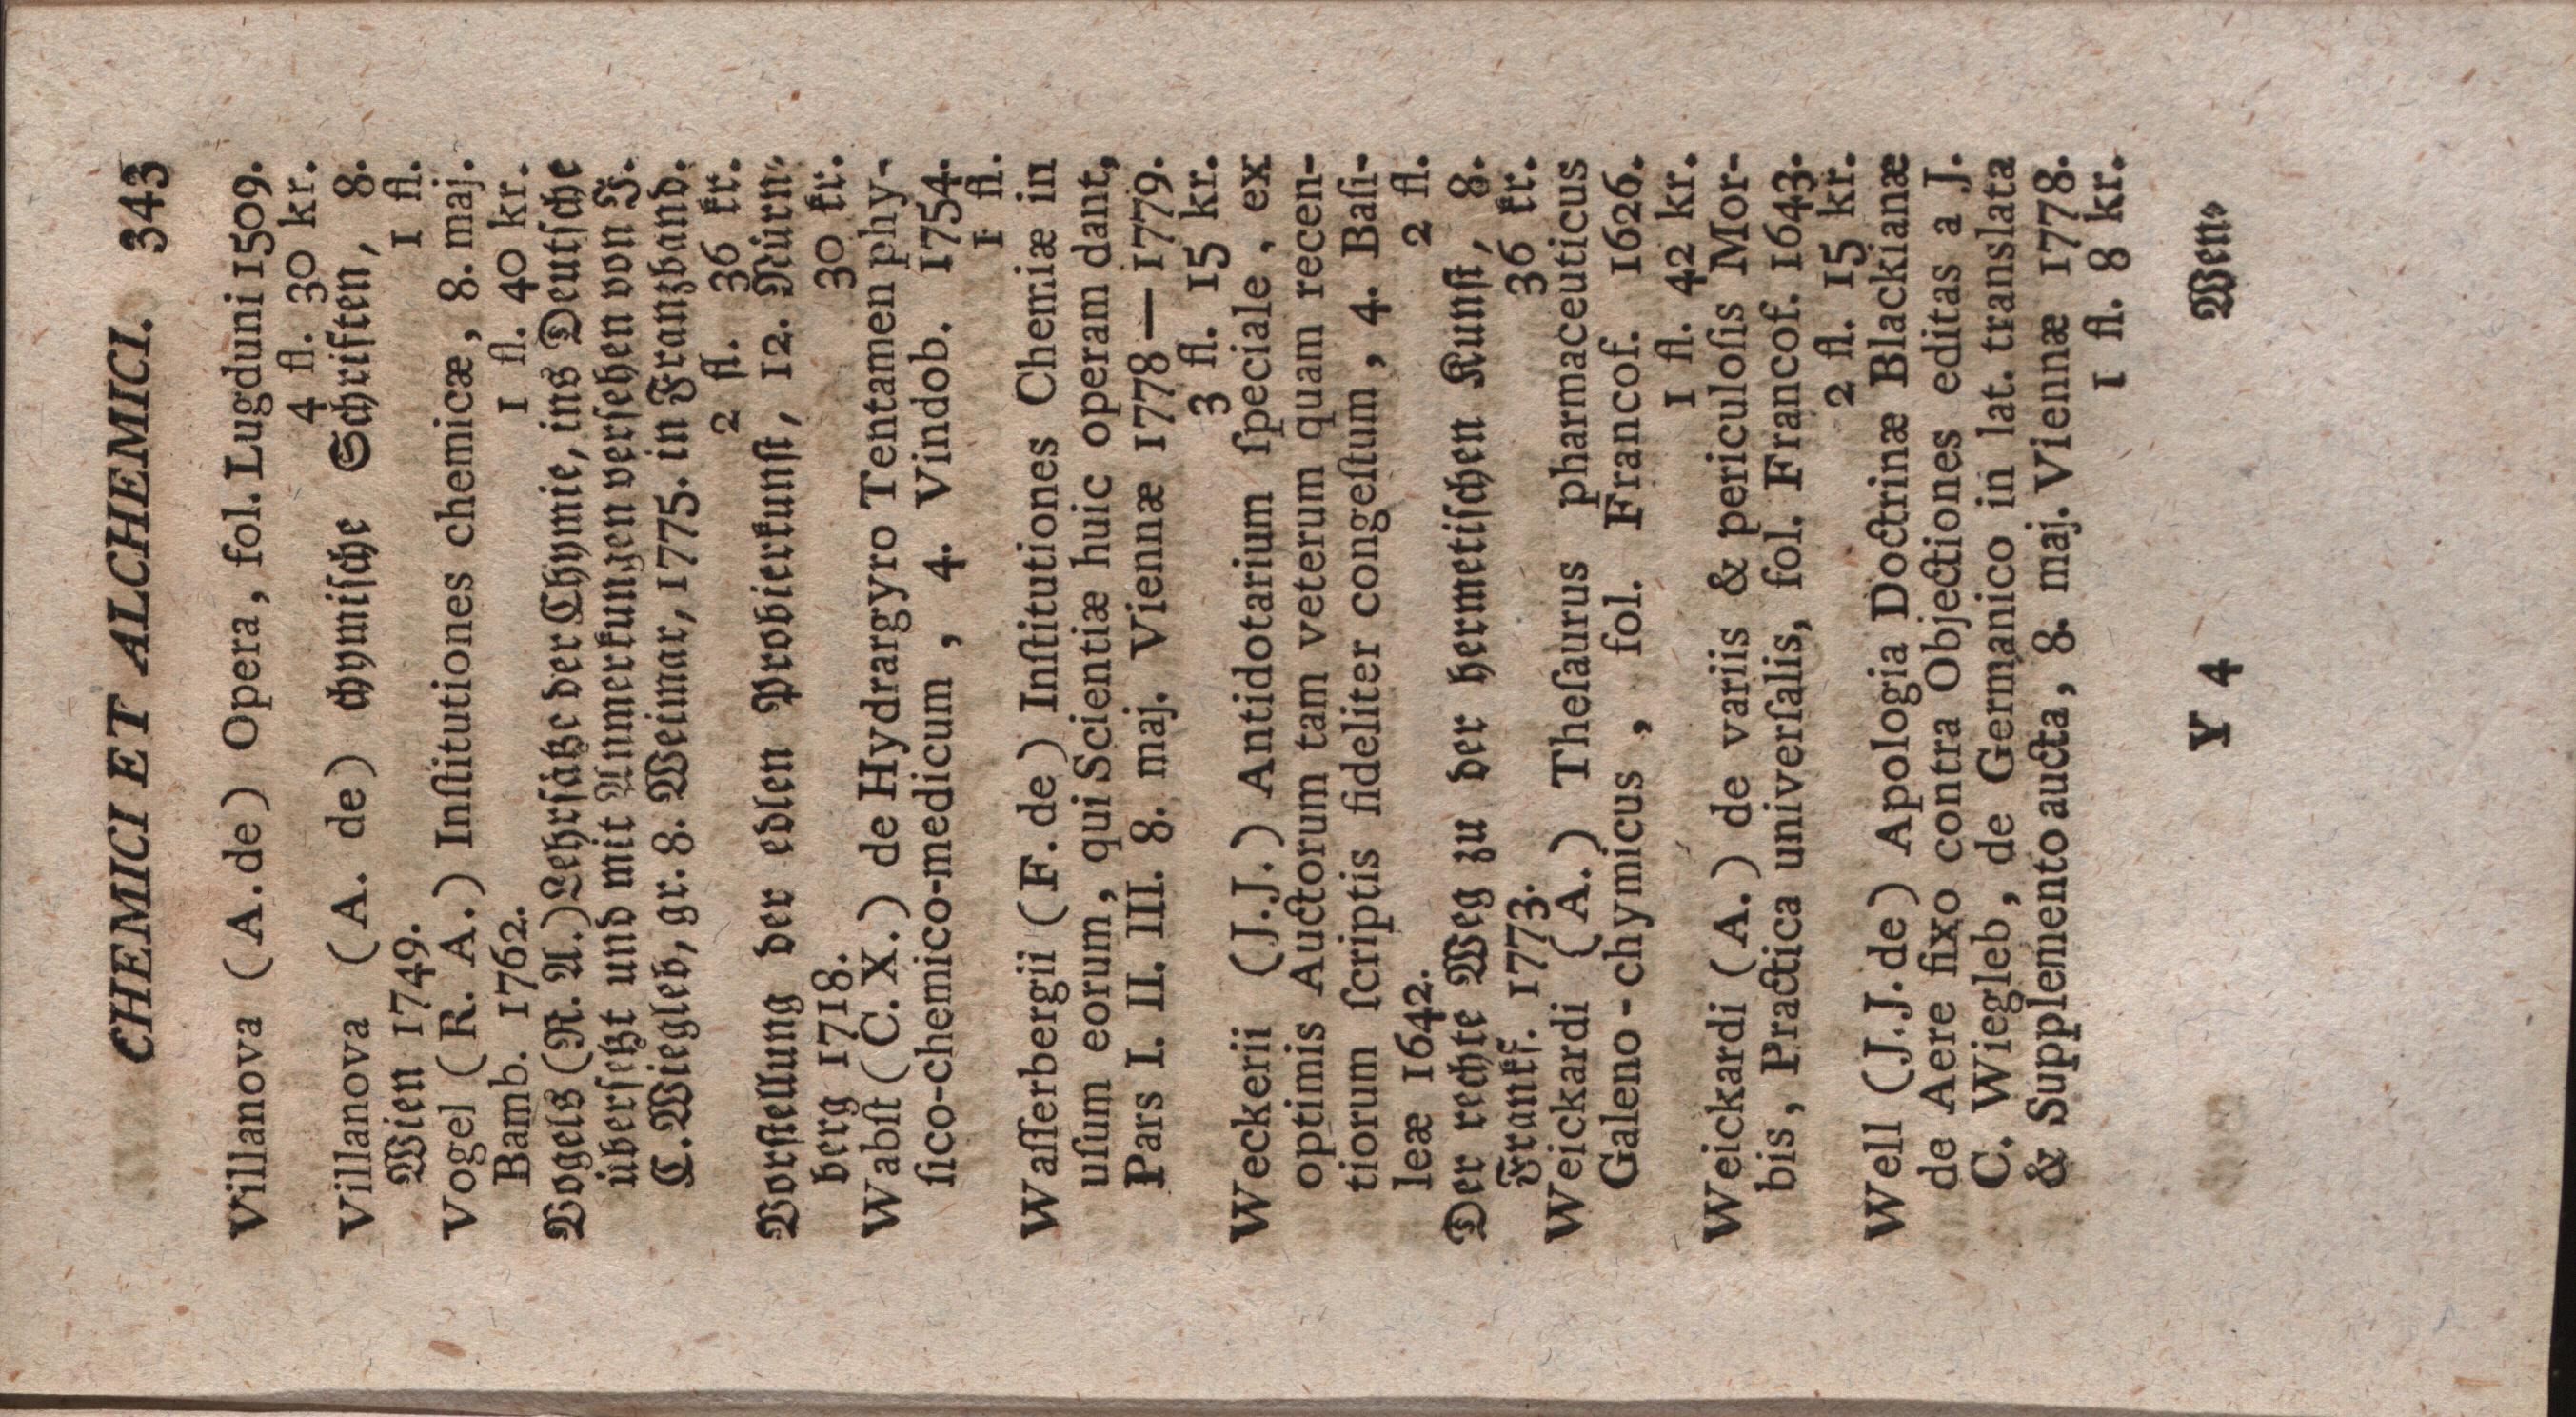 CHEMICI ET ALCHEMICI. 343
Villanova (A. de) Opera, fol. Lugduni 1509.
4 fl. 30 kr.
Villanova (A. de) chymische Schriften, 8.
Wien 1749. 1 fl.
Vogel (R. A.) Inſtitutiones chemicæ, 8. maj.
Bamb. 1762. 1 fl. 40 kr.
Vogels (R. A.) Lehrſätze der Chymie, ins Deutſche
überſetzt und mit Anmerkungen verſehen von J.
C. Wiegleb, gr. 8. Weimar, 1775. in Franzband.
2 fl. 36 kr.
Vorſtellung der edlen Probierkunſt, 12. Nürn-
berg 1718. 30 kr.
Wabſt (C. X.) de Hydrargyro Tentamen phy-
ſico-chemico-medicum, 4. Vindob. 1754.
1 fl.
Waſſerbergii (F. de) Inſtitutiones Chemiæ in
uſum eorum, qui Scientiæ huic operam dant,
Pars I. II. III. 8. maj. Viennæ 1778—1779.
3 fl. 15 kr.
Weckerii (J. J.) Antidotarium ſpeciale, ex
optimis Auctorum tam veterum quam recen-
tiorum ſcriptis fideliter congeſtum, 4. Baſi-
leæ 1642. 2 fl.
Der rechte Weg zu der hermetiſchen Kunſt, 8.
Frankf. 1773. 36 kr.
Weickardi (A.) Theſaurus pharmaceuticus
Galeno-chymicus, fol. Francof. 1626.
1 fl. 42 kr.
Weickardi (A.) de variis & periculoſis Mor-
bis, Practica univerſalis, fol. Francof. 1643.
2 fl. 15 kr.
Well (J. J. de) Apologia Doctrinæ Blackianæ
de Aere fixo contra Objectiones editas a J.
C. Wiegleb, de Germanico in lat. translata
& Supplemento aucta, 8. maj. Viennæ 1778.
1 fl. 8 kr.
Y 4 Wen-